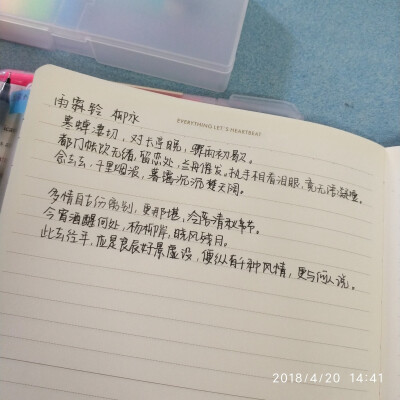 EVERYTHING LET'S HEARTBEAT
雨霖铃 柳永
寒蝉凄切,对长亭晚,骤雨初歇。
都门帐饮无绪,留恋处,兰舟催发。执手相看泪眼,竟无语凝噎。
念去去,千里烟波,暮霭沉沉楚天阔。
多情自古伤离别,更那堪,冷落清秋节。
今宵酒醒何处,杨柳岸,晓风残月。
此去经年,应是良辰好景虚设,便纵有千种风情,更与何人说。
2018/4/20 14:41